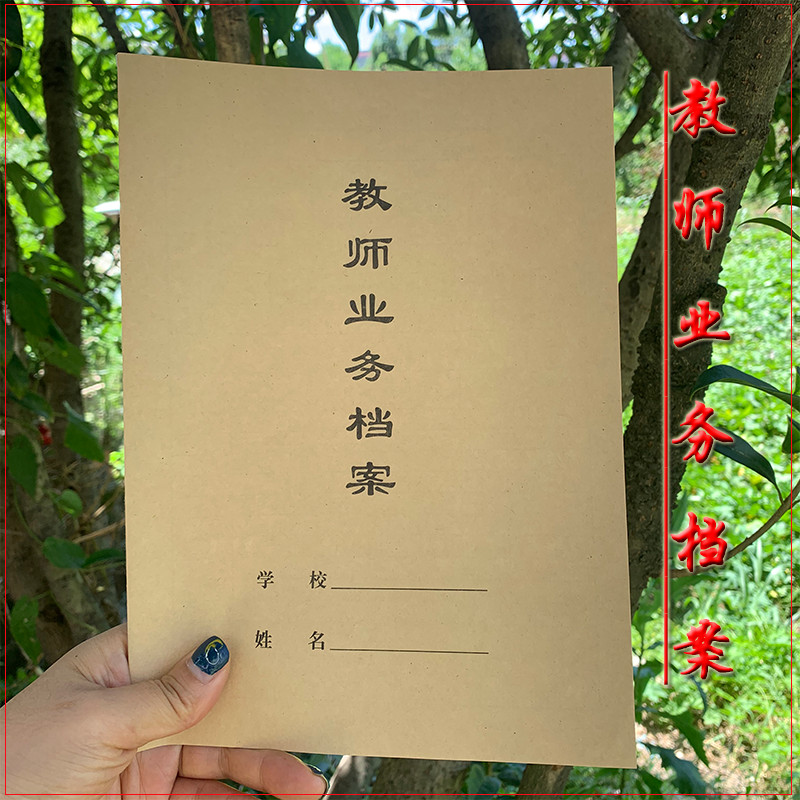 教师业务档案
学 校
姓 名
教师业务档案